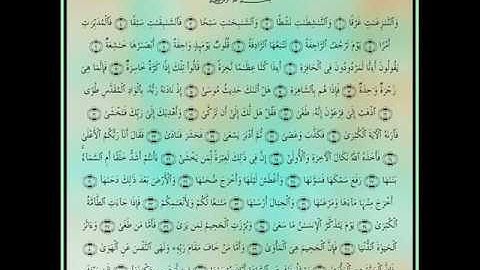 وَٱلنَّٰزِعَٰتِ غَرْقًا ۝ وَٱلنَّٰشِطَٰتِ نَشْطًا ۝ وَٱلسَّٰبِحَٰتِ سَبْحًا ۝ فَٱلسَّٰبِقَٰتِ سَبْقًا ۝ فَٱلْمُدَبِّرَٰتِ
أَمْرًا ۝ يَوْمَ تَرْجُفُ ٱلرَّاجِفَةُ ۝ تَتْبَعُهَا ٱلرَّادِفَةُ ۝ قُلُوبٌ يَوْمَئِذٍ وَاجِفَةٌ ۝ أَبْصَٰرُهَا خَٰشِعَةٌ ۝
يَقُولُونَ أَءِنَّا لَمَرْدُودُونَ فِى ٱلْحَافِرَةِ ۝ أَءِذَا كُنَّا عِظَٰمًا نَّخِرَةً ۝ قَالُوا۟ تِلْكَ إِذًا كَرَّةٌ خَاسِرَةٌ ۝ فَإِنَّمَا هِىَ
زَجْرَةٌ وَٰحِدَةٌ ۝ فَإِذَا هُم بِٱلسَّاهِرَةِ ۝ هَلْ أَتَىٰكَ حَدِيثُ مُوسَىٰٓ ۝ إِذْ نَادَىٰهُ رَبُّهُۥ بِٱلْوَادِ ٱلْمُقَدَّسِ طُوًى
۝ ٱذْهَبْ إِلَىٰ فِرْعَوْنَ إِنَّهُۥ طَغَىٰ ۝ فَقُلْ هَل لَّكَ إِلَىٰٓ أَن تَزَكَّىٰ ۝ وَأَهْدِيَكَ إِلَىٰ رَبِّكَ فَتَخْشَىٰ ۝
فَأَرَىٰهُ ٱلْءَايَةَ ٱلْكُبْرَىٰ ۝ فَكَذَّبَ وَعَصَىٰ ۝ ثُمَّ أَدْبَرَ يَسْعَىٰ ۝ فَحَشَرَ فَنَادَىٰ ۝ فَقَالَ أَنَا۠ رَبُّكُمُ ٱلْأَعْلَىٰ
۝ فَأَخَذَهُ ٱللَّهُ نَكَالَ ٱلْءَاخِرَةِ وَٱلْأُولَىٰٓ ۝ إِنَّ فِى ذَٰلِكَ لَعِبْرَةً لِّمَن يَخْشَىٰٓ ۝ ءَأَنتُمْ أَشَدُّ خَلْقًا أَمِ ٱلسَّمَآءُ ۚ
بَنَىٰهَا ۝ رَفَعَ سَمْكَهَا فَسَوَّىٰهَا ۝ وَأَغْطَشَ لَيْلَهَا وَأَخْرَجَ ضُحَىٰهَا ۝ وَٱلْأَرْضَ بَعْدَ ذَٰلِكَ دَحَىٰهَآ ۝
أَخْرَجَ مِنْهَا مَآءَهَا وَمَرْعَىٰهَا ۝ وَٱلْجِبَالَ أَرْسَىٰهَا ۝ مَتَٰعًا لَّكُمْ وَلِأَنْعَٰمِكُمْ ۝ فَإِذَا جَآءَتِ ٱلطَّآمَّةُ
ٱلْكُبْرَىٰ ۝ يَوْمَ يَتَذَكَّرُ ٱلْإِنسَٰنُ مَا سَعَىٰ ۝ وَبُرِّزَتِ ٱلْجَحِيمُ لِمَن يَرَىٰ ۝ فَأَمَّا مَن طَغَىٰ ۝ وَءَاثَرَ
ٱلْحَيَوٰةَ ٱلدُّنْيَا ۝ فَإِنَّ ٱلْجَحِيمَ هِىَ ٱلْمَأْوَىٰ ۝ وَأَمَّا مَنْ خَافَ مَقَامَ رَبِّهِۦ وَنَهَى ٱلنَّفْسَ عَنِ ٱلْهَوَىٰ ۝